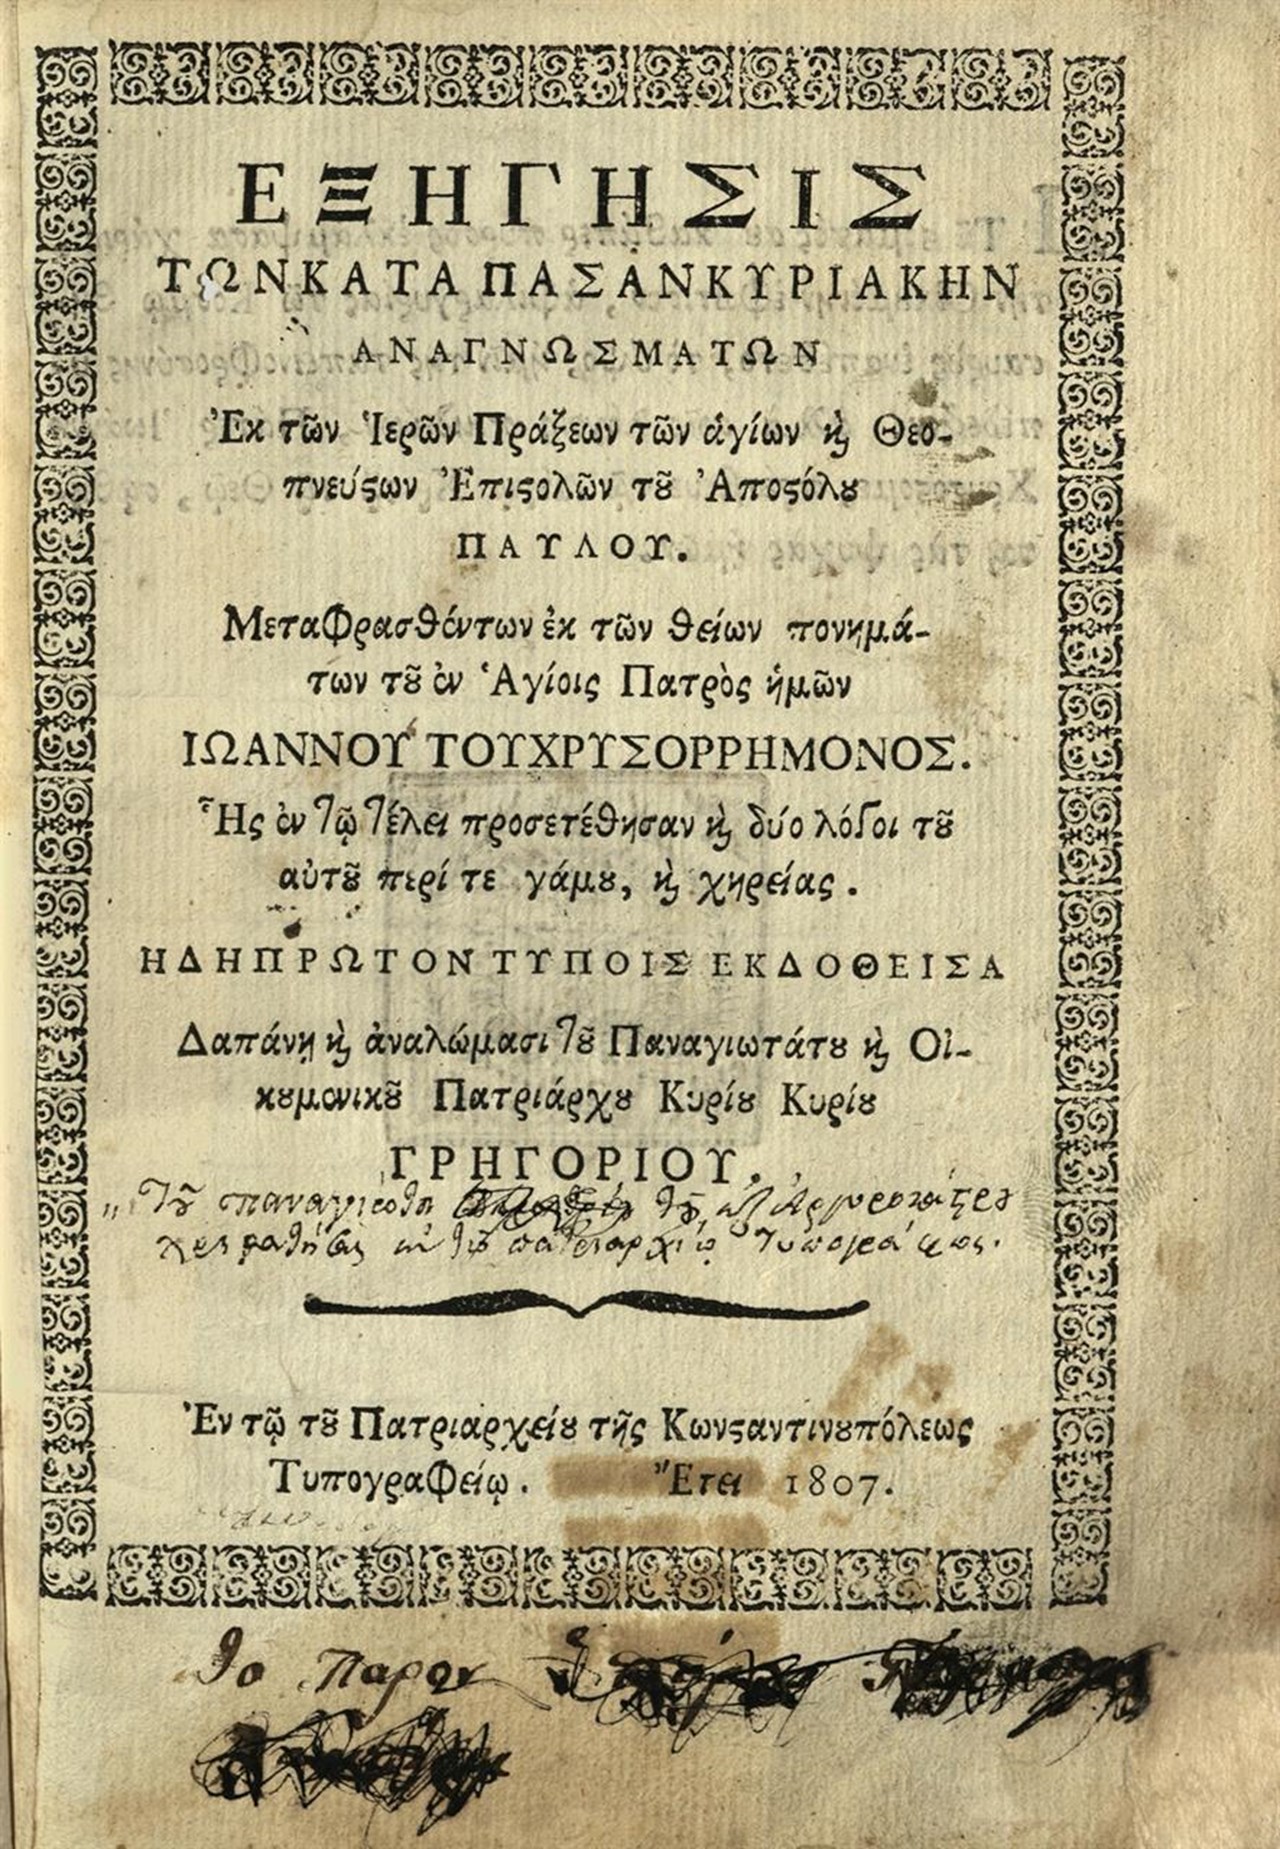 ΕΞΗΓΗΣΙΣ
ΤΩΝ ΚΑΤΑ ΠΑΣΑΝ ΚΥΡΙΑΚΗΝ
ΑΝΑΓΝΩΣΜΑΤΩΝ
Ἐκ τῶν Ἱερῶν Πράξεων τῶν ἁγίων ϗ Θεο-
πνεύϛων Ἐπιϛολῶν τȣ͂ Ἀποϛόλȣ
ΠΑΥΛΟΥ.
Μεταφρασθέντων ἐκ τῶν θείων πονημά-
των τȣ͂ ἐν Ἁγίοις Πατρὸς ἡμῶν
ΙΩΑΝΝΟΥ ΤΟΥ ΧΡΥΣΟΡΡΗΜΟΝΟΣ.
Ἧς ἐν τῷ τέλει προσετέθησαν ϗ δύο λόγοι τȣ͂
αὐτȣ͂ περί τε γάμȣ, ϗ χηρείας.
ΗΔΗ ΠΡΩΤΟΝ ΤΥΠΟΙΣ ΕΚΔΟΘΕΙΣΑ
Δαπάνῃ ϗ ἀναλώμασι τȣ͂ Παναγιωτάτȣ ϗ Οἰ-
κȣμενικȣ͂ Πατριάρχȣ Κυρίȣ Κυρίȣ
ΓΡΗΓΟΡΙΟΥ.
Ἐν τῷ τȣ͂ Πατριαρχείȣ τῆς Κωνϛαντινȣπόλεως
Τυπογραφείῳ. Ἔτει 1807.
το παρον